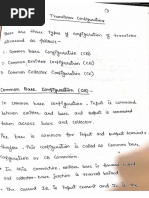 Transistor Configuration
There are three types of configuration of transistor
discussed as follows:-
1. Common base Configuration (CB)
2. Common Emitter Configuration (CE)
3. Common Collector Configuration (CC)
Common Base Configuration (CB) -
In common base configuration, Input is connected
between emitter and base and output is
taken across base and collector.
The base is common for input and output terminals
thus, this configuration is called as common base
configuration or CB connection.
In this connection, emitter base is forward biased
and collector base junction is reverse biased.
The current IE is input current and Ic is the